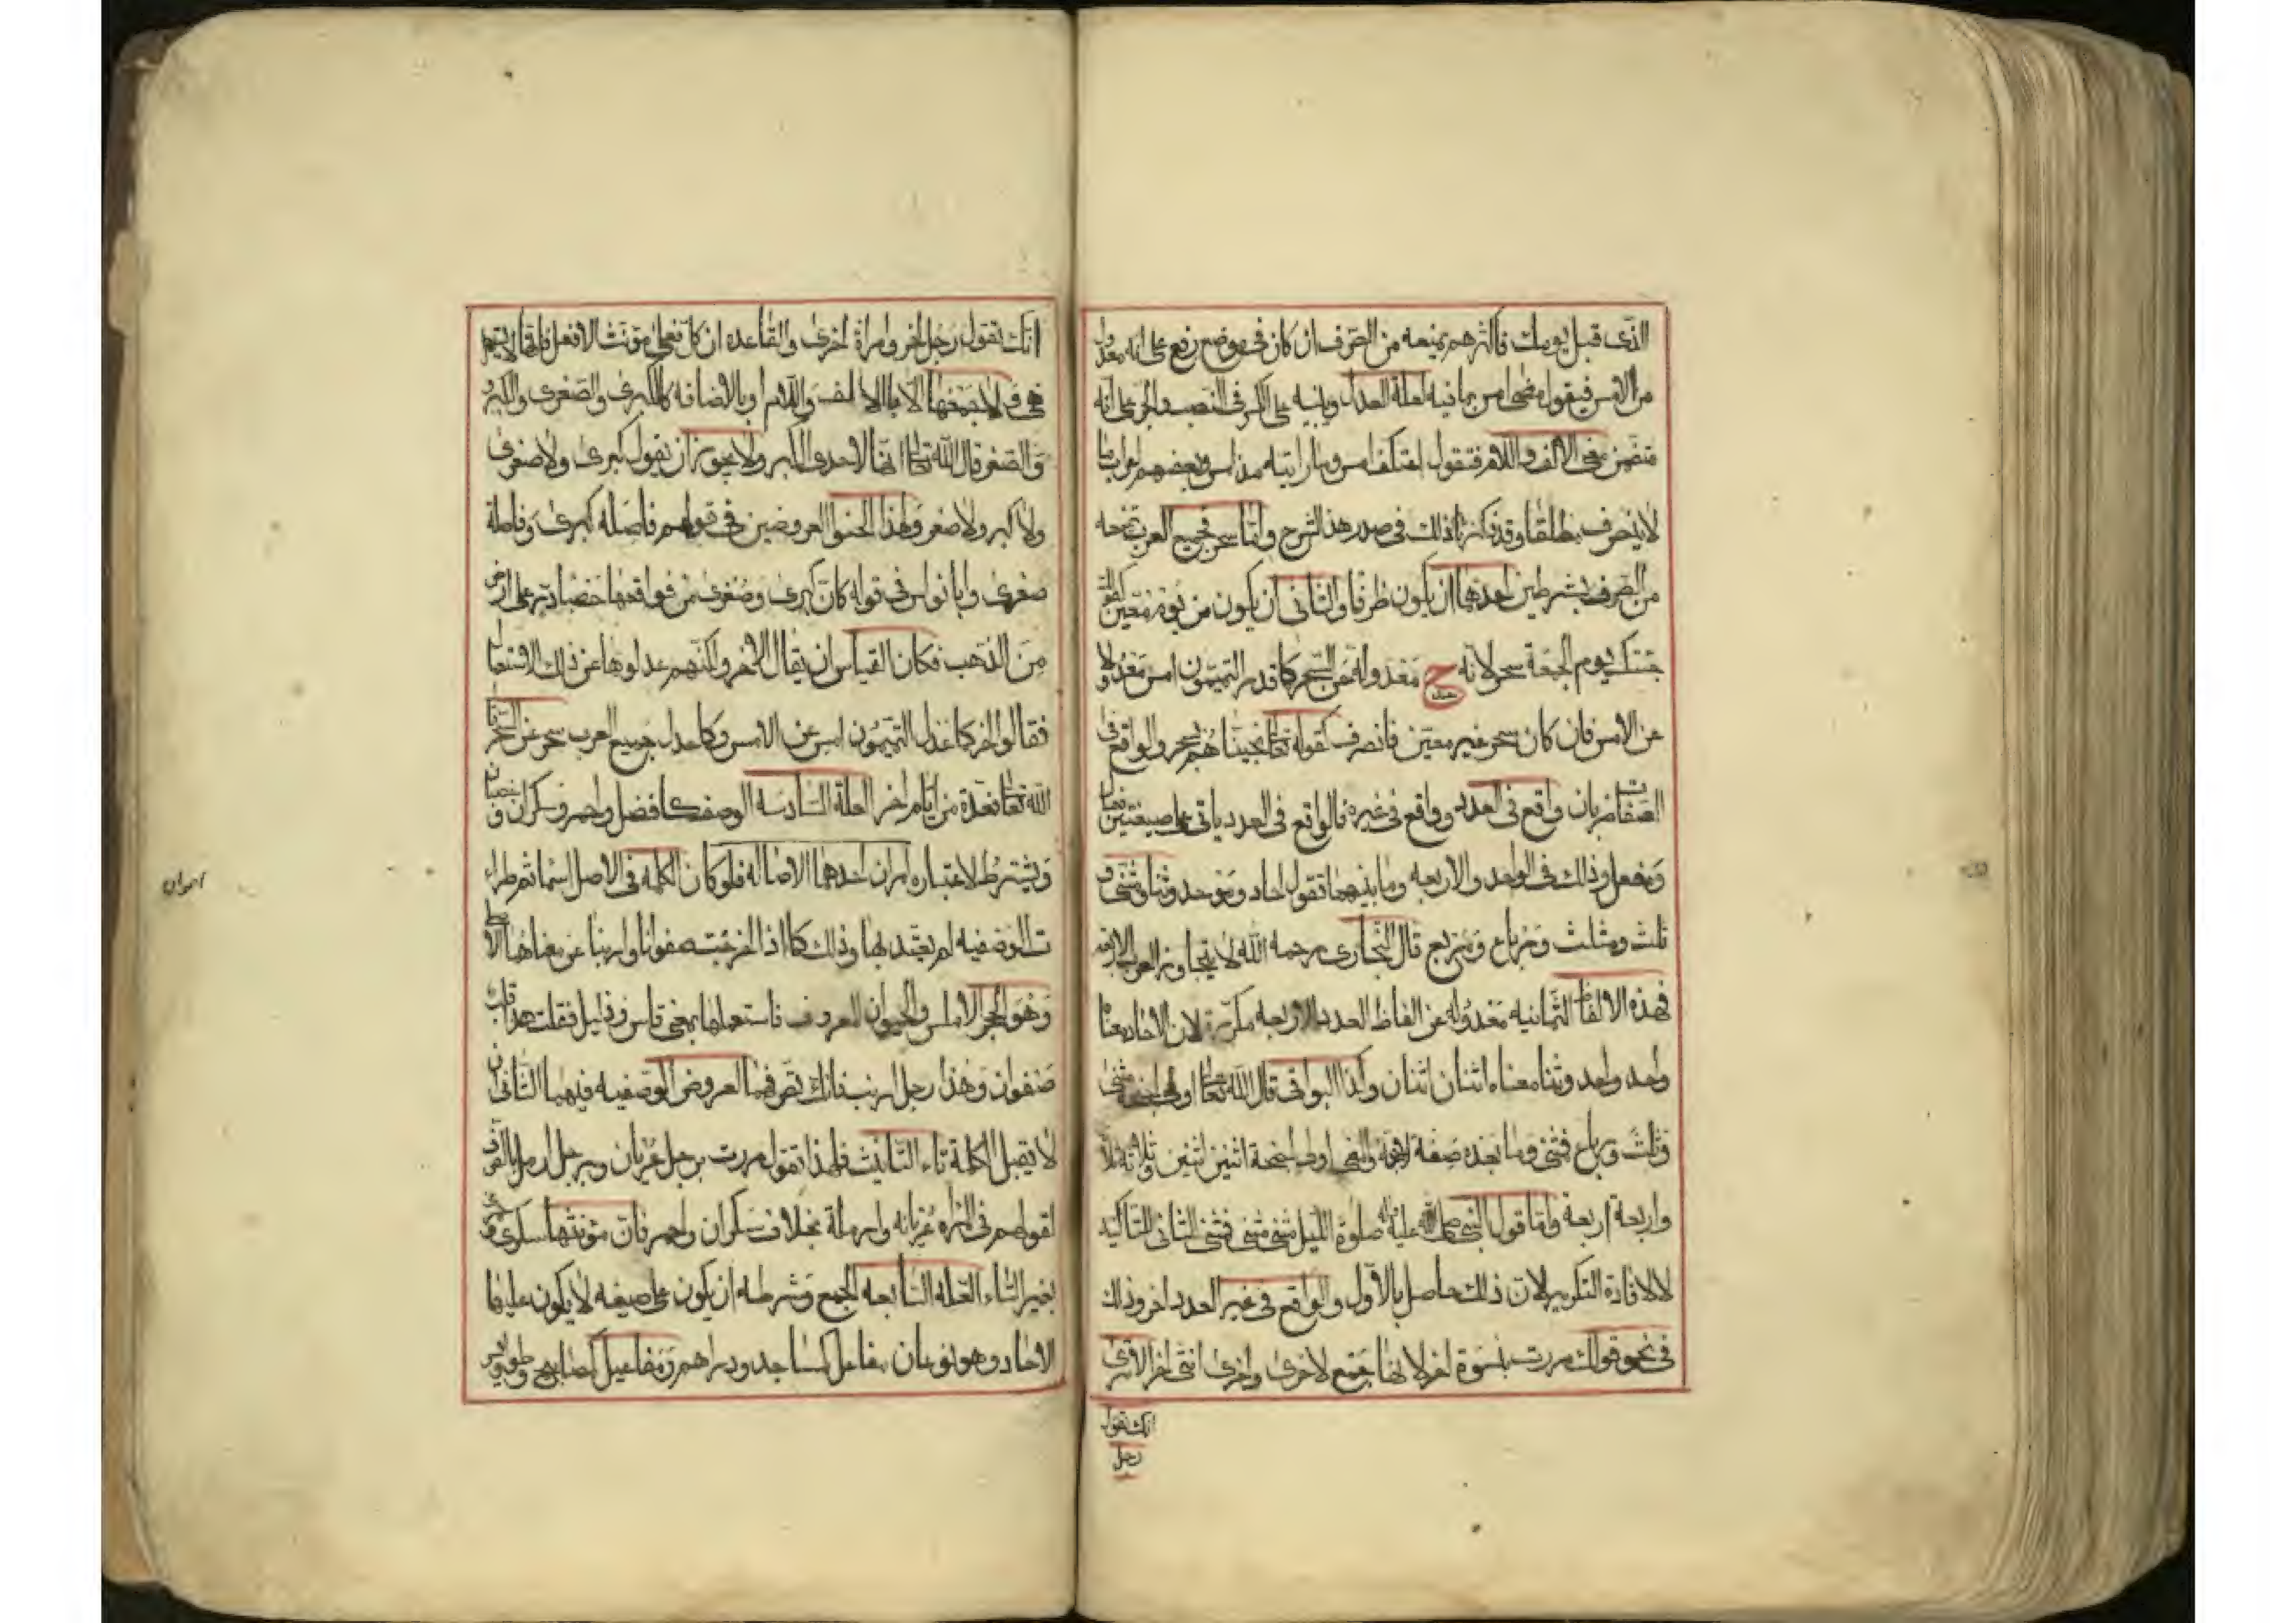 الذى قبل يومك فاكثرهم يمنعه من الصرف ان كان فى موضع رفع على انه معدول
من الامس فيقول مضى امس بما فيه لعلة العدل ويبنيه على الكسر فى النصب والجر على انه
متضمن معنى الالف واللام فتقول اعتكفت امس وما رايته مذ امس وبعضهم اعراب ما
لا ينصرف مطلقا وقد ذكرنا ذلك فى صدر هذا الشرح واما سحر فجميع العرب تمنعه
من الصرف بشرطين احدهما ان يكون ظرفا والثانى ان يكون من يوم معين كقولك
جئتك يوم الجمعة سحر لانه ح معدولة عن السحر كما قدر التميميون امس معدولا
عن الامس فان كان سحر غير معين فانصرف كقوله تعالى نجيناهم بسحر والواقع فى
الصفات ضربان واقع فى العدد وواقع فى غيره فالواقع فى العدد ياتى على صيغتين فعال
ومفعل وذلك فى الواحد والاربعه وما بينهما تقول احاد وموحد وثنا ومثنى و
ثلث ومثلث ورباع ومربع قال البخارى رحمه الله لا يتجاوز العرب الاربعه
فهذه الالفاظ الثمانيه معدوله عن الفاظ العدد الاربعه مكررة لان الاحاد معناه
واحد واحد وثنا معناه اثنان اثنان وكذا البواقى قال الله تعالى اولى اجنحة مثنى
وثلث ورباع فمثنى وما بعده صفة لاجنحة والمعنى اولى اجنحة اثنين اثنين وثلاثة ثلاثة
واربعة اربعة واما قول النبى صلى الله عليه واله صلوة الليل مثنى مثنى فمثنى الثانى للتاكيد
لا لافادة التكرير لان ذلك حاصل بالاول والواقع فى غير العدد اخر وذلك
فى نحو قولك مررت بنسوة اخر لانها جمع لاخرى واخرى انثى اخر الا ترى
انك تقول
رجل
انك تقول رجل اخر وامراة اخرى والقاعده ان كل فعلى مؤنث الافعل فانها لا تستعمل
هى ولا جمعها الا بالالف واللام او بالاضافه كالكبرى والصغرى والكبر
والصغر قال الله تعالى انها لاحدى الكبر ولا يجوز ان يقول كبرى ولا صغرى
ولا كبر ولا صغر ولهذا لحنوا العروضيين فى قولهم فاصله كبرى وفاصلة
صغرى وابا نواس فى قوله كان كبرى وصغرى من فواقعها حصباء در على ارض
من الذهب فكان القياس ان يقال الاخر ولكنهم عدلوها عن ذلك الاستعمال
فقالوا اخر كما عدل التميميون امس عن الامس وكما عدل جميع العرب سحر عن السحر قال
الله تعالى فعدة من ايام اخر العلة السادسه الوصف كافضل واحمر وسكران و غضبان
ويشترط لاعتباره امران احدهما الاصاله فلو كان الكلمه فى الاصل اسما ثم طراء
ت الوصفيه لم يعتد بها وذلك كما اذا اخرجت صفوانا وارنبا عن معناهما الاصلى
وهو الحجر الاملس والحيوان المعروف فاستعملتها بمعنى قاس وذليل فقلت هذا قلب
صفوان وهذا رجل ارنب فانك تصرفهما لعروض الوصفيه فيهما الثانى ان
لا تقبل الكلمة تاء التانيث فلهذا تقول مررت برجل عريان وبرجل ارمل بالصرف
لقولهم فى المراه عريانه وارملة بخلاف سكران واحمر فان مؤنثها سكرى و حمراء
بغير التاء العلة السابعه الجمع وشرطه ان يكون على صيغه لا يكون عليها
الاحاد وهو نوعان مفاعل كمساجد ودراهم ومفاعيل كمصابيح وطواويس